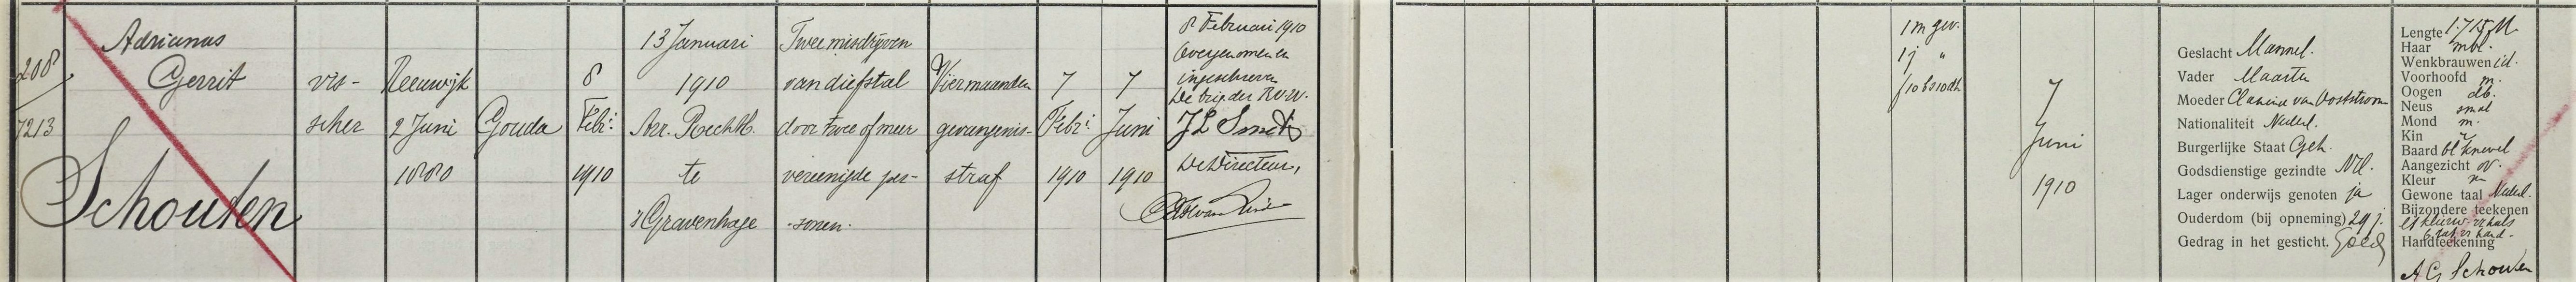 208
7213
Adrianus
Gerrit
Schouten
vis-
scher
Reeuwijk
2 Juni
1880
Gouda
8
Febr:
1910
13 Januari
1910
Arr. Rechtb.
te
's Gravenhage
Twee misdrijven
van diefstal
door twee of meer
vereenigde per-
sonen.
Vier maanden
gevangenis-
straf
7
Febr:
1910
7
Juni
1910
8 Februari 1910
Overgenomen en
ingeschreven
De brig der RV.W.
De Directeur,
1 m gev.
1 j "
7
Juni
1910
Geslacht Mannel.
Vader Maarten
Moeder van Oostström
Nationaliteit Nederl.
Burgerlijke Staat Geh.
Godsdienstige gezindte NH.
Lager onderwijs genoten ja
Ouderdom (bij opneming) 29 j.
Gedrag in het gesticht. Goed
Lengte 1.715 M
Haar mbl.
Wenkbrauwen id.
Voorhoofd m.
Oogen db.
Neus smal
Mond m.
Kin
Baard bl knevel
Aangezicht ov.
Kleur
Gewone taal Nederl.
Bijzondere teekenen
hals
hand.
Handteekening
A G Schouten